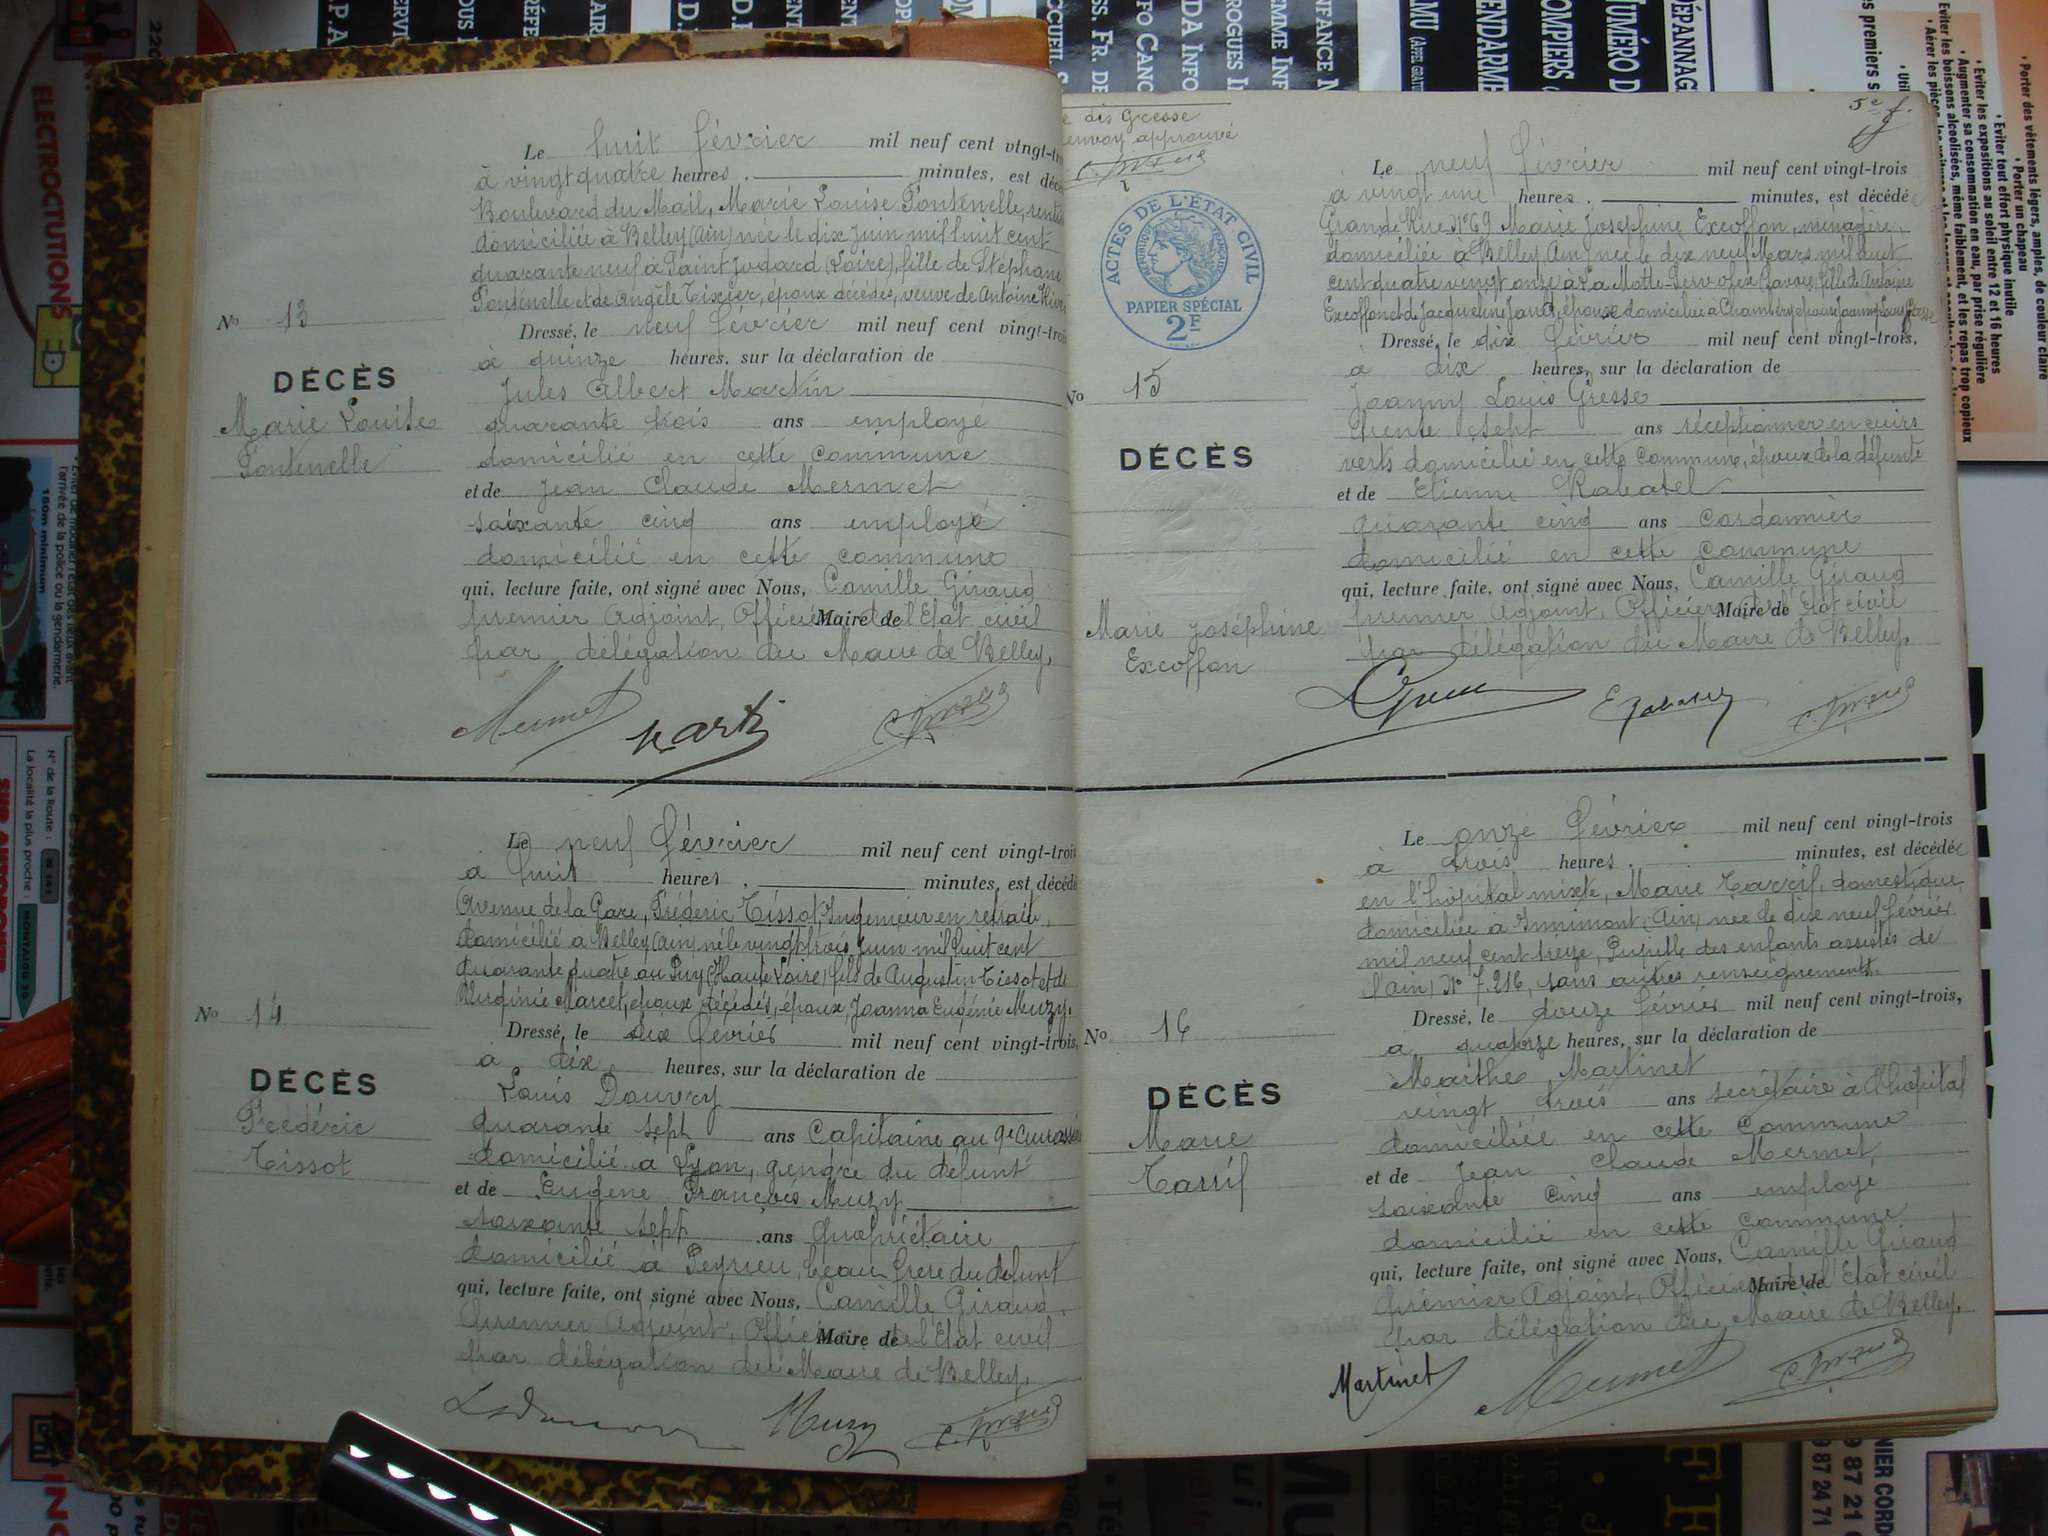 Le huit février mil neuf cent vingt-tro
à vingt quatre heures . minutes, est décé
Boulevard du Mail, Marie Louise Fontenelle, rentiè
domiciliée à Belley (Ain) née le dix juin mil huit cent
quarante neuf à Saint Jodard (Loire), fille de Stéphane
Fontenelle et de Angèle Tixier, époux décédés, veuve de Antoine
No 13
Dressé, le neuf février mil neuf cent vingt-trois
à quinze heures, sur la déclaration de
DÉCÈS
Jules Albert Martin
Marie Louise
Fontenelle
quarante trois ans employé
domicilié en cette commune
et de Jean Claude Mermet
soixante cinq ans employé
domicilié en cette commune
qui, lecture faite, ont signé avec Nous, Camille Giraud
premier Adjoint, Officier Maire de l'Etat civil
par délégation du Maire de Belley.
Mermet Martin
Le neuf février mil neuf cent vingt-trois
à huit heures . minutes, est décédé
Avenue de la Gare, Frédéric Tissot Ingénieur en retraite,
domicilié à Belley (Ain) né le vingt trois juin mil huit cent
quarante quatre au Puy (Haute Loire) fils de Augustin Tissot et de
Virginie Marcet, époux décédés, époux, Joanna Eugénie Muzy.
No 14
Dressé, le dix février mil neuf cent vingt-trois,
à dix heures, sur la déclaration de
DÉCÈS
Frédéric
Tissot
Louis Douvry
quarante sept ans Capitaine au 9e Cuirassé
domicilié à Lyon, gendre du défunt
et de Eugène François Muzy
soixante sept ans propriétaire
domicilié à Peyrieu, beau frère du défunt
qui, lecture faite, ont signé avec Nous, Camille Giraud,
premier Adjoint, Officier Maire de l'Etat civil
par délégation du Maire de Belley.
Muzy
5e f.
e dis Gresse
envoy approuvé
Le neuf février mil neuf cent vingt-trois
à vingt une heures . minutes, est décédée
Grande Rue No 69 Marie Josephine Excoffon, ménagère,
domiciliée à Belley (Ain) née le dix neuf Mars mil huit
cent quatre vingt onze à La Motte-Servolex (Savoie) fille de Antoine
Excoffon et de Jacqueline époux domiciliés à Chambéry, épouse Joanny Louis Gresse
ACTES DE L'ÉTAT CIVIL
RÉPUBLIQUE FRANÇAISE
PAPIER SPÉCIAL
2F
No 15
Dressé, le dix février mil neuf cent vingt-trois,
à dix heures, sur la déclaration de
DÉCÈS
Joanny Louis Gresse
trente sept ans réceptionner en cuirs
verts domicilié en cette commune, époux de la défunte
et de Etienne Rabatel
quarante cinq ans cordonnier
domicilié en cette commune
qui, lecture faite, ont signé avec Nous, Camille Giraud
premier Adjoint, Officier Maire de l'Etat civil
par délégation du Maire de Belley.
Marie Joséphine
Excoffon
Le onze février mil neuf cent vingt-trois
à trois heures . minutes, est décédée
en l'hôpital mixte, Marie Tarrif, domestique,
domiciliée à Innimont (Ain) née le dix neuf février
mil neuf cent treize, Pupille des enfants assistés de
l'ain, No 7.216, sans autres renseignements.
No 16
Dressé, le douze février mil neuf cent vingt-trois,
à quatorze heures, sur la déclaration de
DÉCÈS
Marie
Tarrif
Marthe Martinet
vingt trois ans secrétaire à l'hôpital
domiciliée en cette commune
et de Jean Claude Mermet
soixante cinq ans employé
domicilié en cette commune
qui, lecture faite, ont signé avec Nous, Camille Giraud
premier Adjoint, Officier Maire de l'Etat civil
par délégation du Maire de Belley.
Martinet Mermet
ELECTROCUTIONS
150m minimum
N° de la Route :
La localité la plus proche :
MONTAIGU 20
DÉPANNAG
NUMÉRO D
POMPIERS
GENDARME
(APPEL GRATU
• Porter des vêtements légers, amples, de couleur claire
• Porter un chapeau
• Eviter tout effort physique inutile
• Eviter les expositions au soleil entre 12 et 16 heures
• Augmenter sa consommation en eau, par prise régulière
Eviter les boissons alcoolisées, même faiblement, et les repas trop copieux